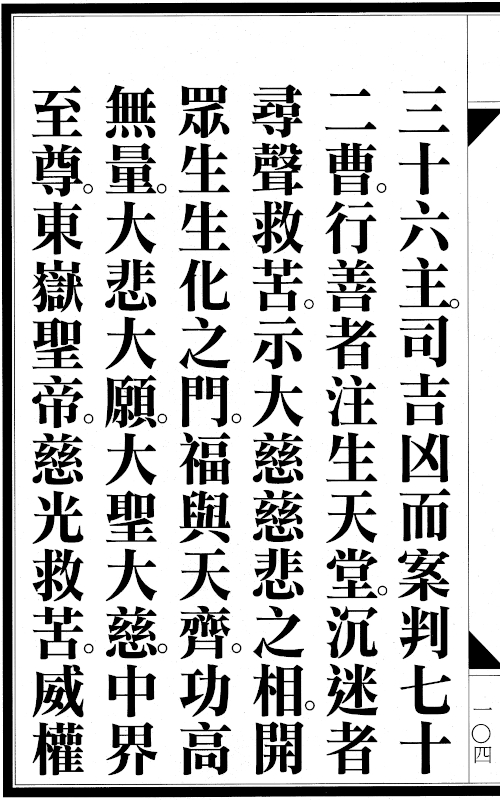 三十六主。司吉凶而案判七十
二曹。行善者注生天堂。沉迷者
尋聲救苦。示大慈慈悲之相。開
眾生生化之門。福與天齊。功高
無量。大悲大願。大聖大慈。中界
至尊。東嶽聖帝。慈光救苦。威權
一〇四